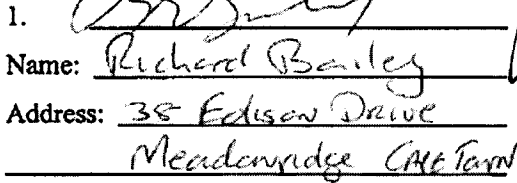 1.
Name: Richard Bailey
Address: 38 Edison Drive
Meadowridge Cape Town